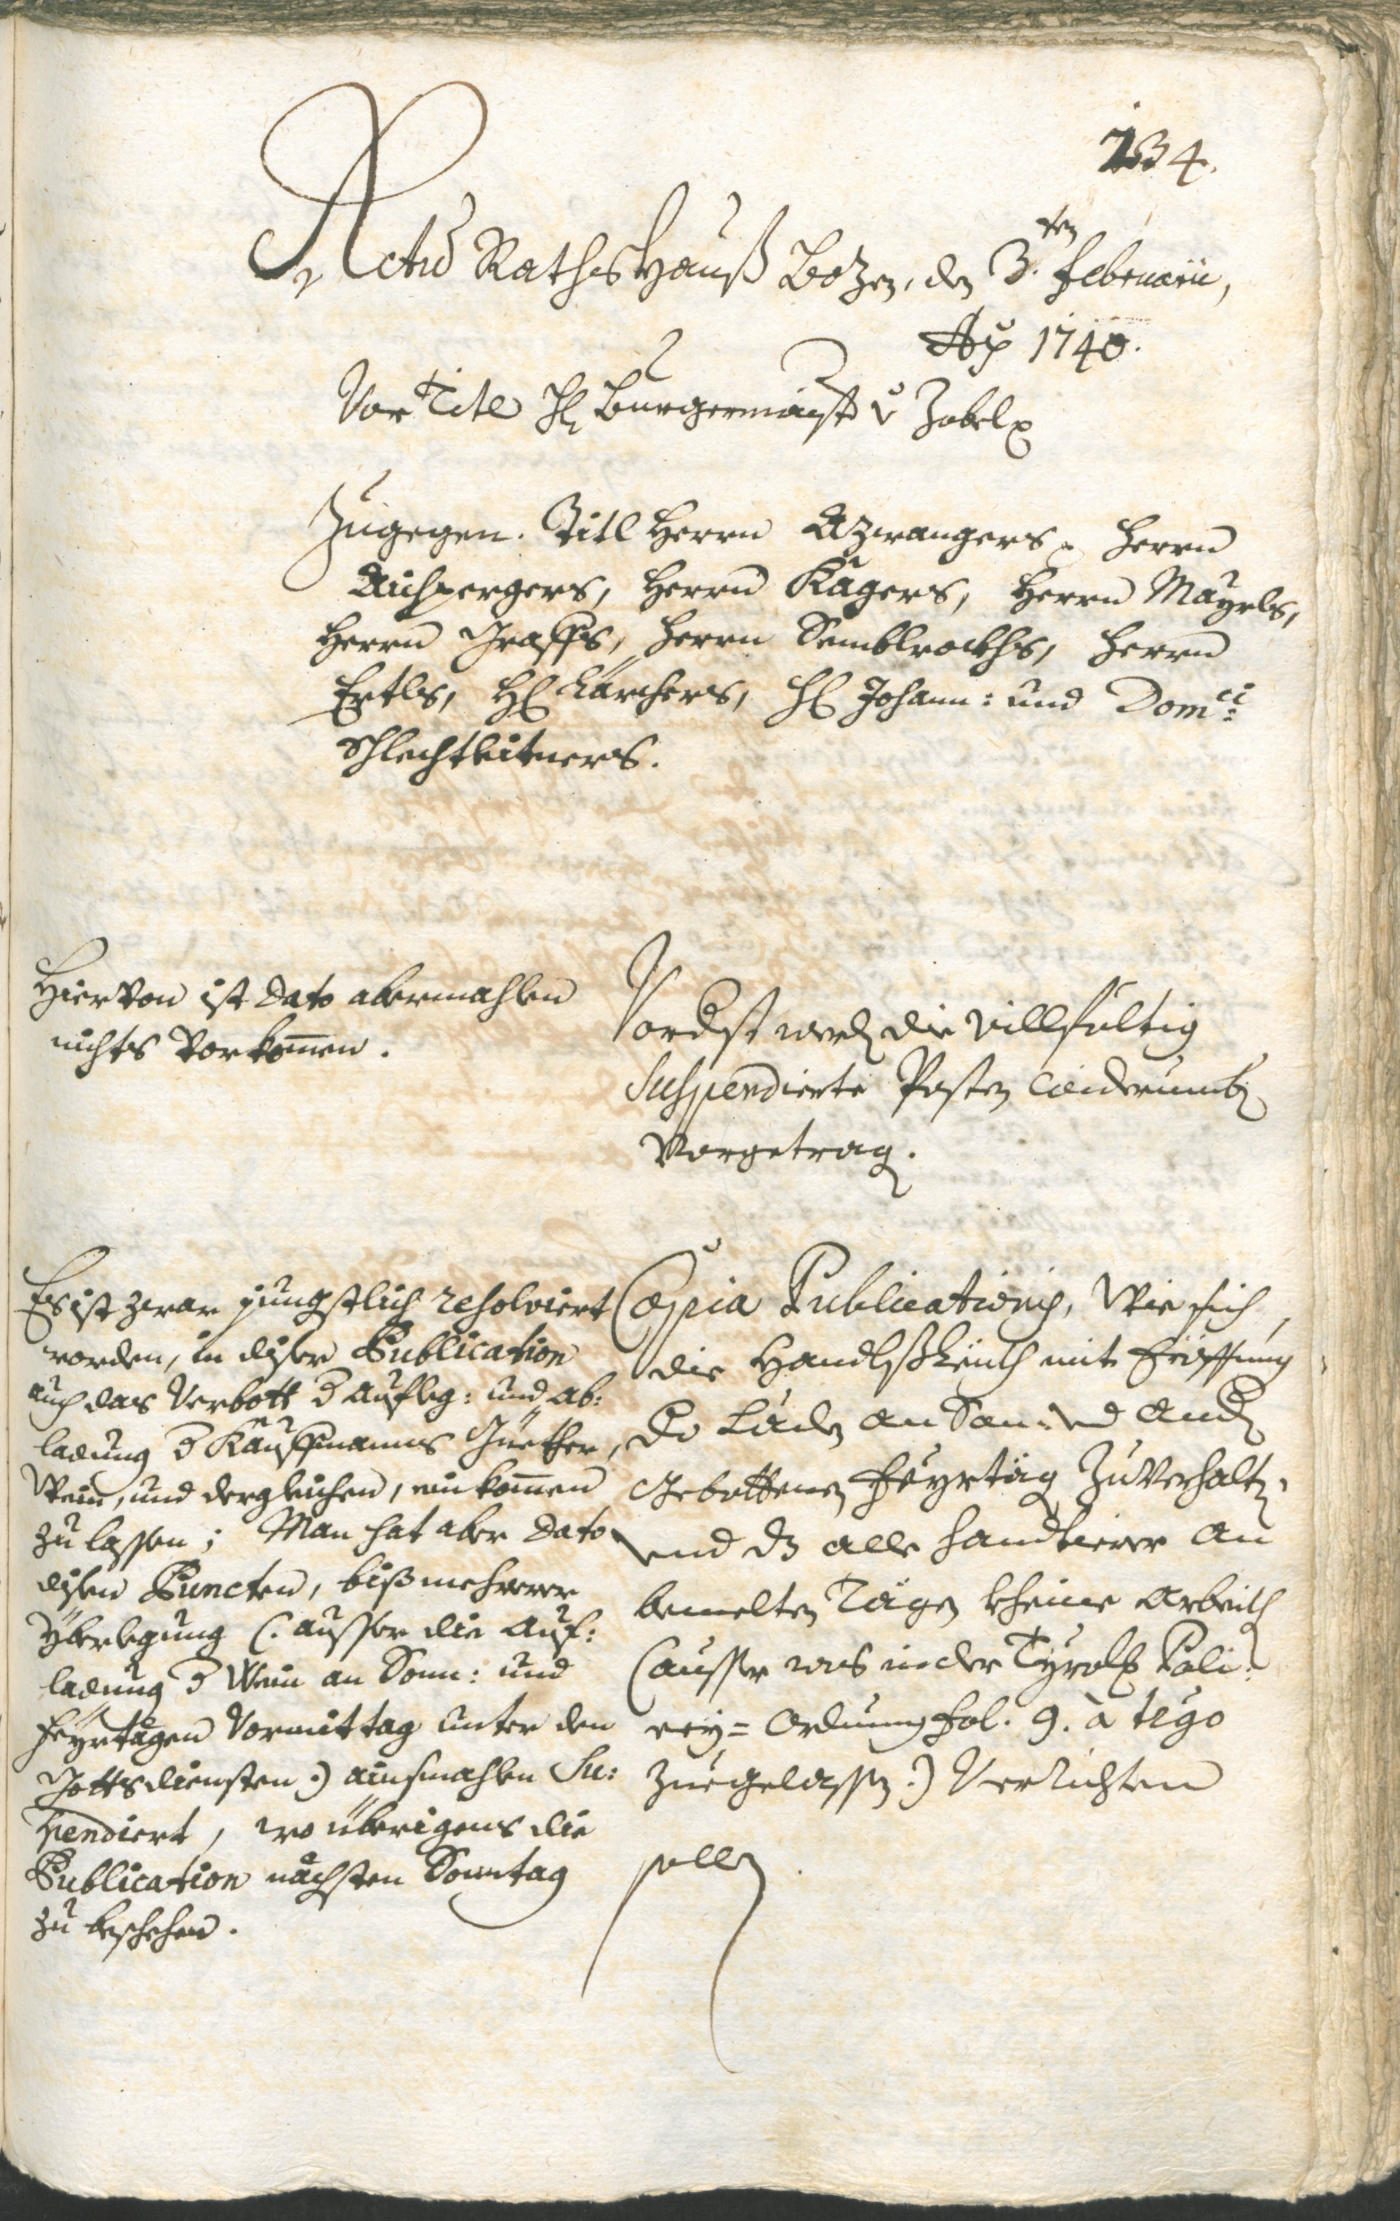 234.
Actum Rathshauß Bozen, den 3.ten Februarii,
Ao 1740.
Vor Titl H. Burgermaister v Zobel
Zugegen. Titl Herrn Azwangers, Herrn
Aichpergers, Herrn Kagers, Herrn Mayrls,
Herrn Graffs, Herrn Semblrockhs, Herrn
Ertls, H. Larchers, H. Johann: und Domci:
Schlechtleitners.
Hiervon ist dato abermahlen
nichts vorkomen.
Vordist werden die villfältig
suspendierte Posten widerumb
Vorgetragen.
Es ist zwar jüngstlich resolviert
worden, in diser Publication
auch das Verbott der Aufleg: und Ab:
ladung der Kauffmanns Güether,
Wein, und dergleichen, einkomen
zu lassen; Man hat aber dato
disen Puncten, biß mehrerer
Yberlegung (: ausser die Auf:
ladung der Wein an Sonn: und
Feyrtägen Vormittag unter den
Gottsdiensten :) ainsmahlen Su:
spendiert, wo übrigens die
Publication nächsten Sonntag
zu beschehen.
Copia Publicationis, Wie sich
die Handlsßleuth mit Eröffnung
der Läden an Son: und andern
Gebottenen Feyrtäg zuverhalten,
und dz alle handtierer an
bemelten Tägen kheine Arbeith
(ausser was in der Tyrol. Poli:
cey= Ordnung fol. 9. à tergo
zuegelassen :) Verrichten
sollen.